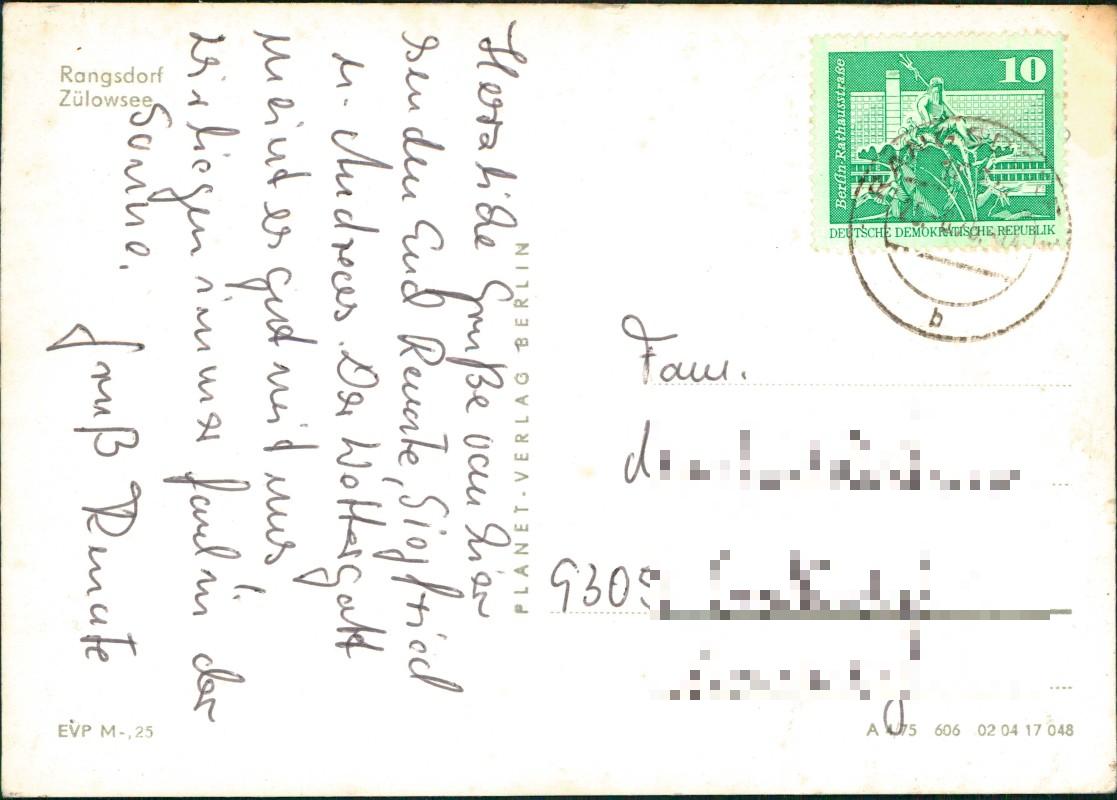 Rangsdorf
Zülowsee
Herzliche Grüße von hier
senden Euch Renate, Siegfried
u. Andreas. Der Wettergott
meint es gut mit uns
wir liegen immer faul in der
Sonne.
Gruß Renate
PLANET-VERLAG BERLIN
10
Berlin-Rathausstraße
DEUTSCHE DEMOKRATISCHE REPUBLIK
b
Fam.
930
EVP M -,25
A 4/75 606 02 04 17 048